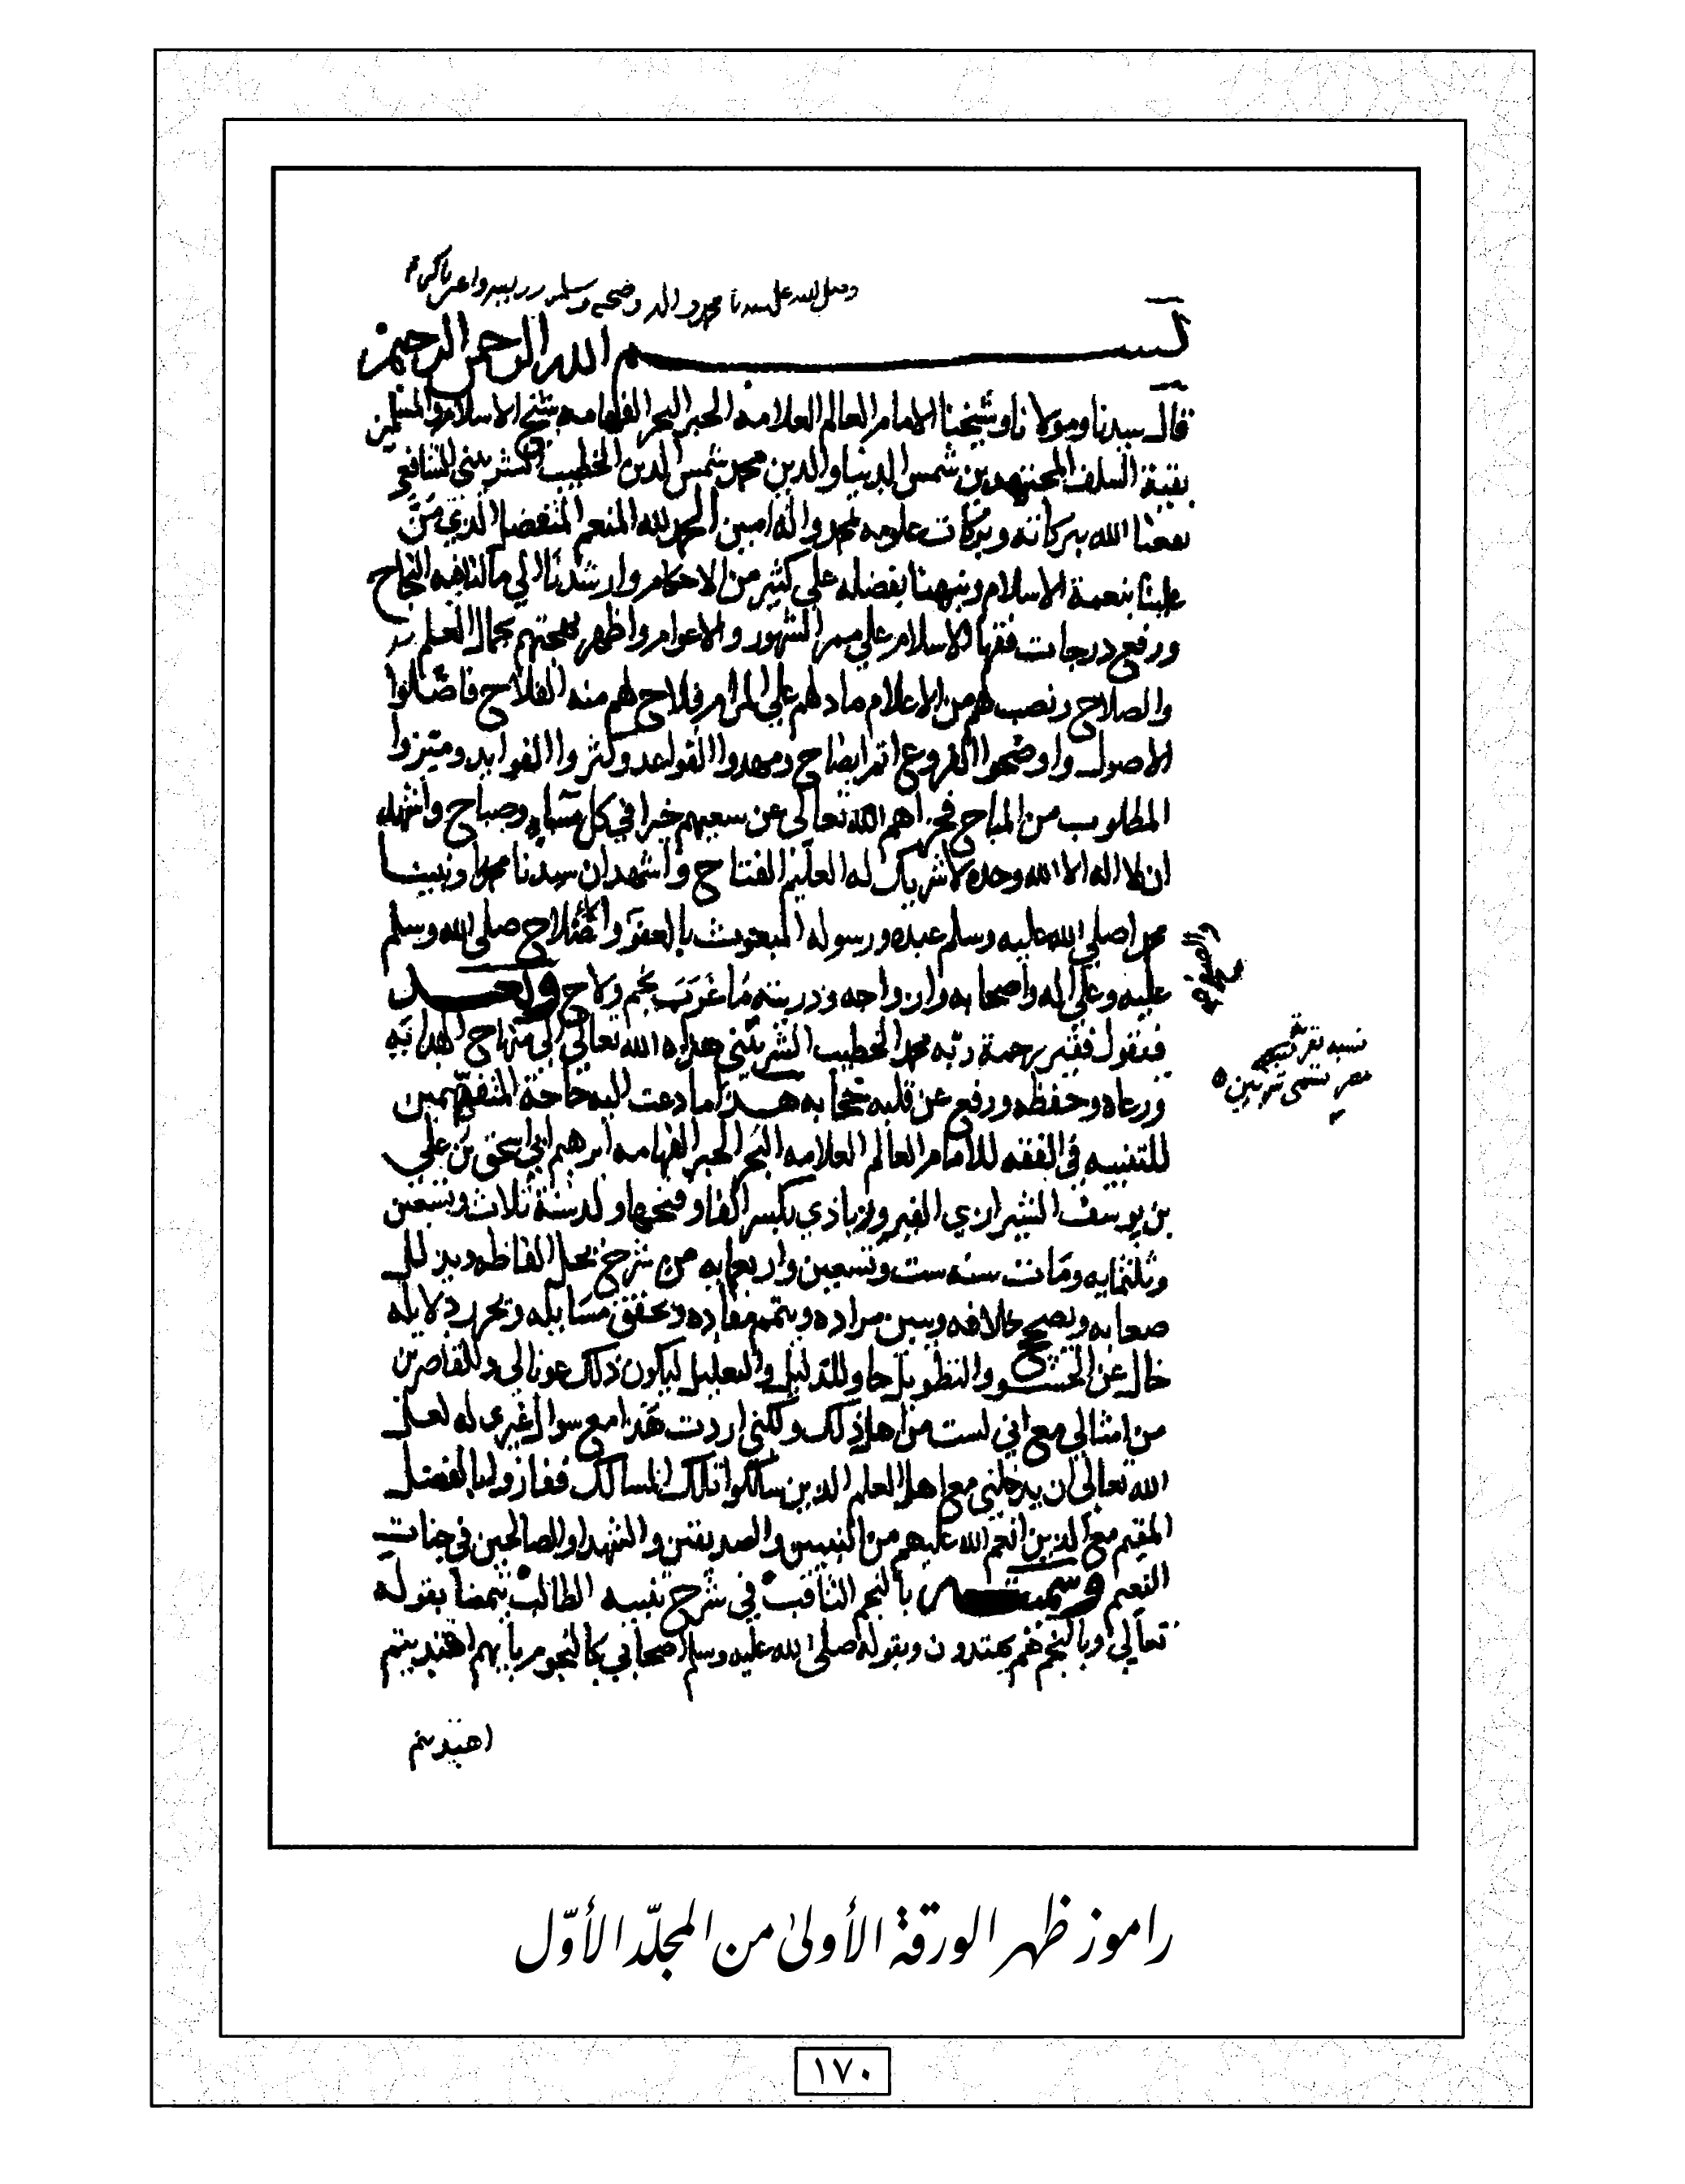 وصلى الله على سيدنا محمد واله وصحبه وسلم رب يسر واعن يا كريم
بسم الله الرحمن الرحيم
قال سيدنا ومولانا وشيخنا الامام العالم العلامه الحبر البحر الفهامه شيخ الاسلام والمسلمين
بقية السلف المجتهدين شمس الدنيا والدين محمد شمس الدين الخطيب الشربيني الشافعي
نفعنا الله ببركاته وبركات علومه بمحمد واله امين الحمد لله المنعم المتفضل الذي منّ
علينا بنعمة الاسلام ونبهنا بفضله على كثير من الاحكام وارشدنا الي ما لنا فيه النجاح
ورفع درجات فقها الاسلام علي ممر الشهور والاعوام واظهر بهجتهم بجمال العلم
والصلاح ونصب لهم من الاعلام ما دلهم على المرام فلاح لهم منه الفلاح فاصّلوا
الاصول واوضحوا الفروع اتم ايضاح ومهدوا القواعد وكثروا الفوايد وميزوا
المطلوب من المباح فجزاهم الله تعالى عن سعيهم خيرا في كل مساء وصباح واشهد
ان لا اله الا الله وحده لا شريك له العليم الفتاح واشهد ان سيدنا محمدا ونبينا
محمدا صلي الله عليه وسلم عبده ورسوله المبعوث بالعفو والاصلاح صلى الله وسلم
عليه وعلى اله واصحابه وازواجه وذريته ما غرب نجم ولاح وبعد
فنقول فقير رحمة ربه محمد الخطيب الشربيني هداه الله تعالي الي منهاج الهدايه
ورعاه وحفظه ورفع عن قلبه حجابه هذا ما دعت اليه حاجة المتفهمين
للتنبيه في الفقه للامام العالم العلامه البحر الحبر الفهامه ابرهيم ابي اسحق بن علي
بن يوسف الشيرازي الفيروزباذي بكسر الفا وفتحها ولد سنة ثلاث وتسعين
وثلثمايه ومات سنه ست وسبعين واربعمايه من شرح يحل الفاظه ويذلل
صعابه ويصحح خلافه ويبين مراده ويتمم مفاده ويحقق مسايله ويحرر دلايله
خال عن الحشو والتطويل حاو للدليل والتعليل ليكون ذلك عونا لي وللقاصرين
من امثالي مع اني لست من اهل ذلك ولكني اردت هذا مع سوال غيري له لعل
الله تعالى ان يدخلني مع اهل العلم الذين سلكوا تلك المسالك ففازوا بالفضل
المقيم مع الذين انعم الله عليهم من النبيين والصديقين والشهدا والصالحين في جنات
النعيم وسميته بالنجم الثاقب في شرح تنبيه الطالب تيمنا بقوله
تعالي وبالنجم هم يهتدون وبقوله صلى الله عليه وسلم اصحابي كالنجوم بايهم اقتديتم
اهتديتم
نسبه لقرية
مصر تسمى شربين
راموز ظهر الورقة الأولىٰ من المجلّد الأوّل
١٧٠